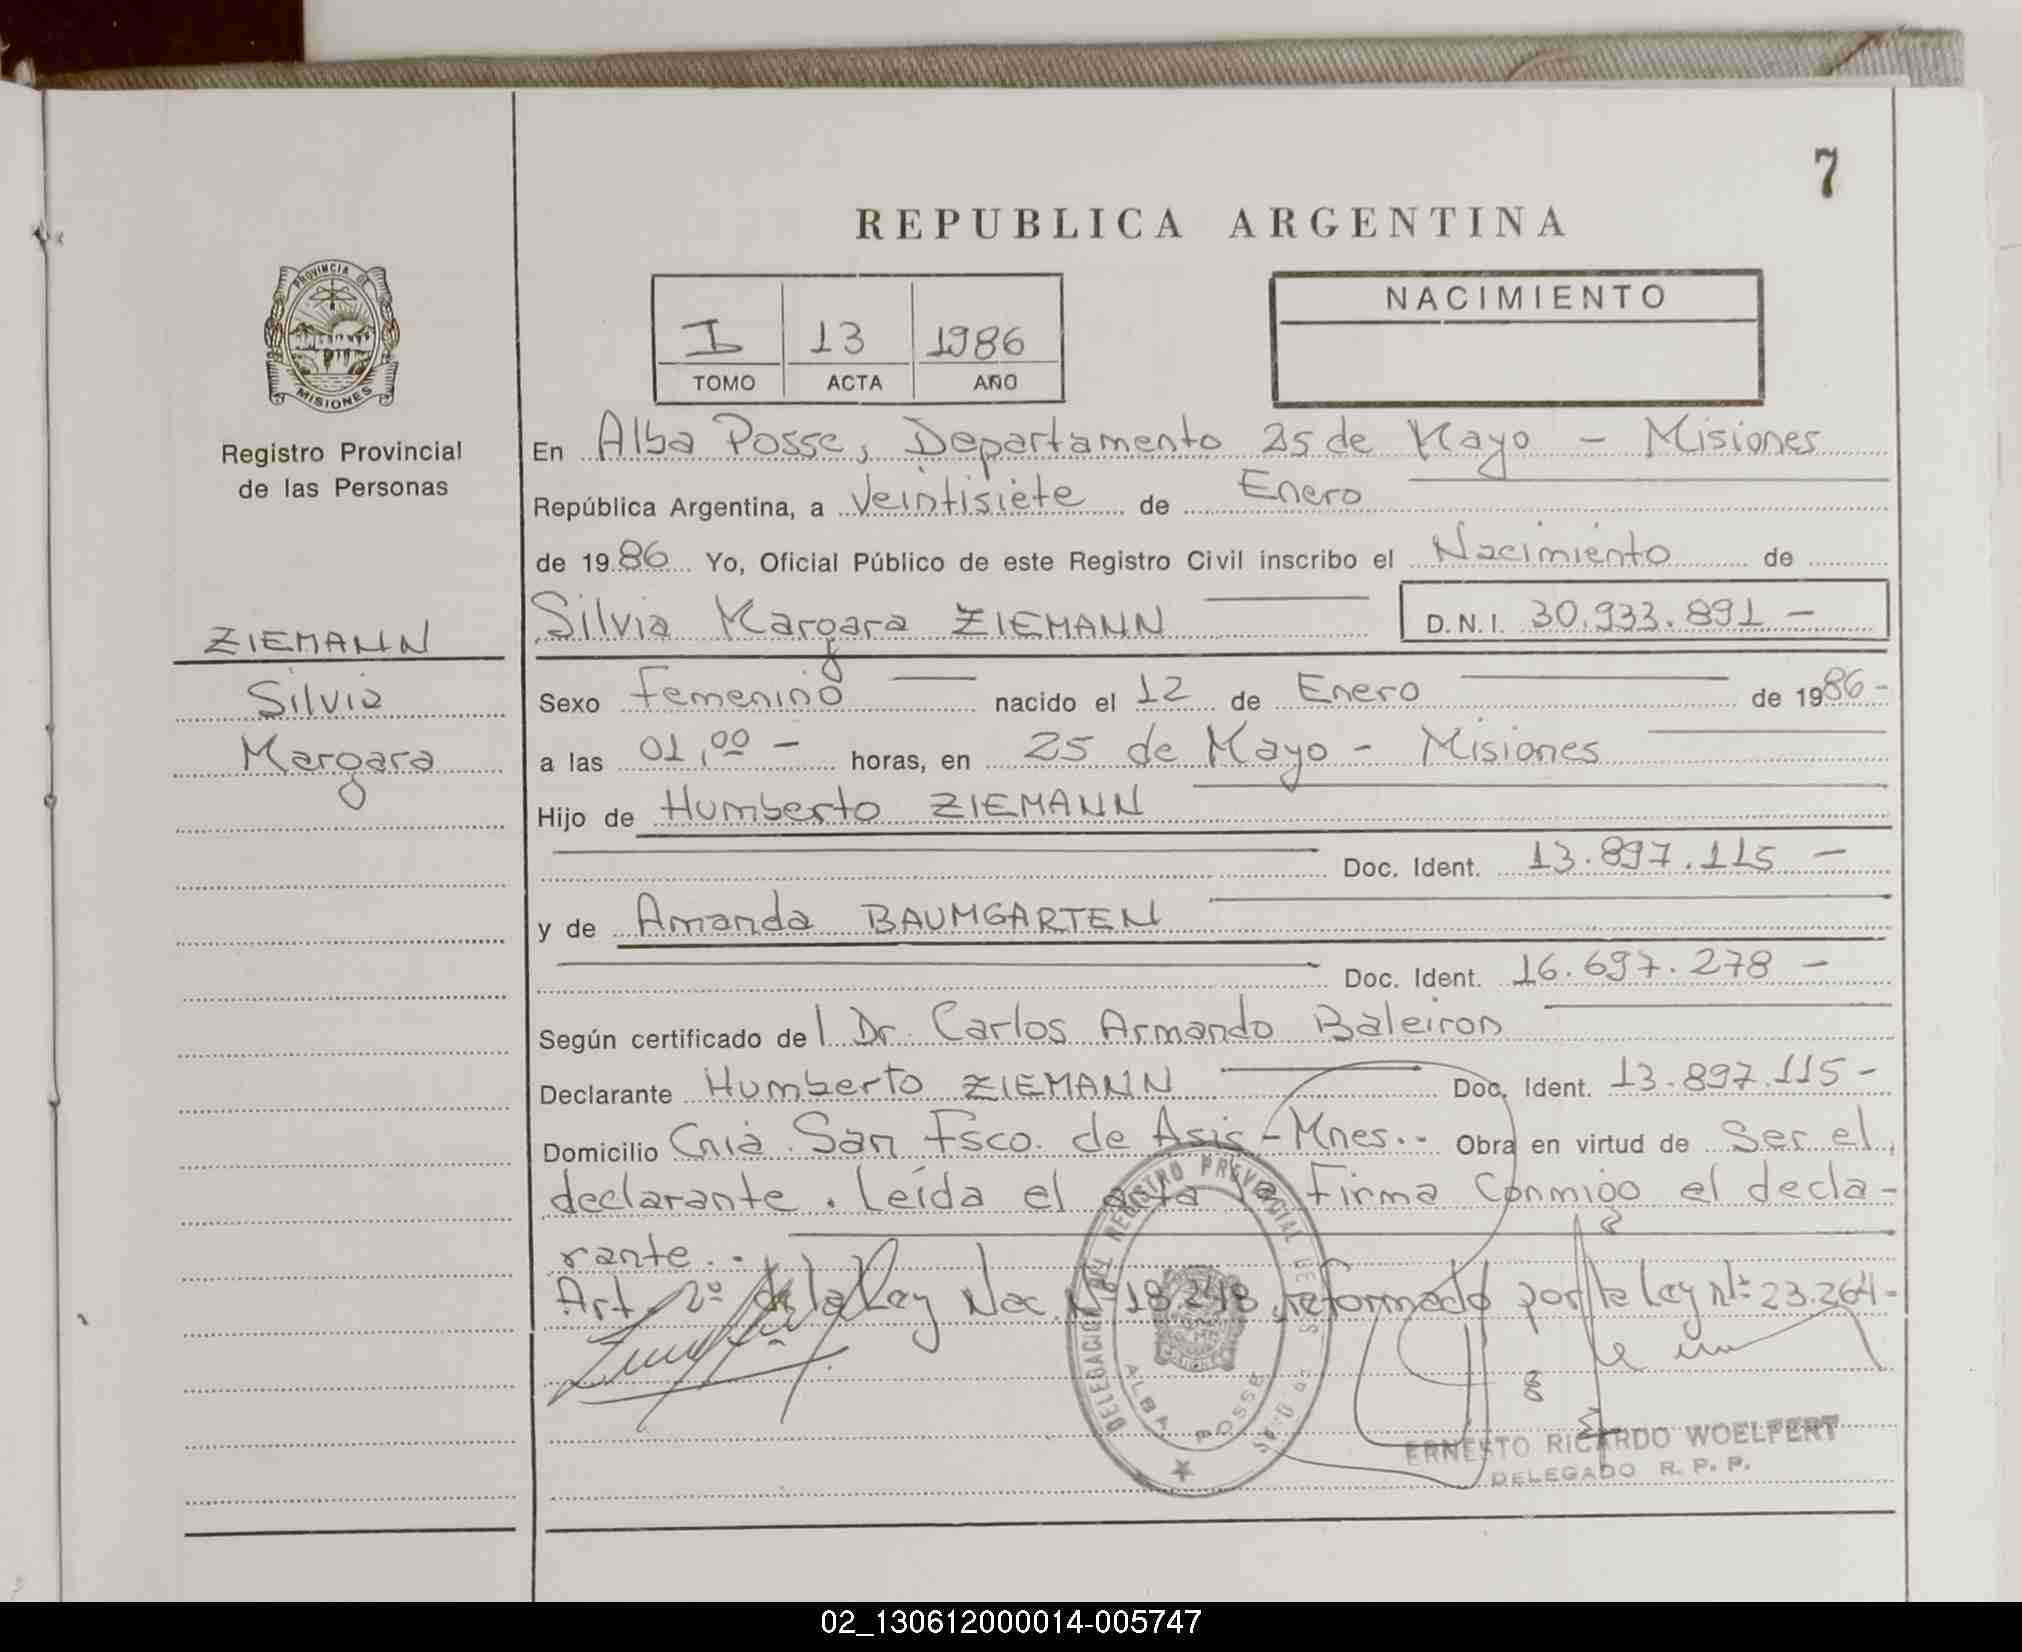 7
REPUBLICA ARGENTINA
PROVINCIA DE
MISIONES
Registro Provincial
de las Personas
ZIEMANN
Silvia
Margara
I 13 1986
TOMO ACTA AÑO
NACIMIENTO
En Alba Posse, Departamento 25 de Mayo - Misiones
República Argentina, a Veintisiete de Enero
de 1986 Yo, Oficial Público de este Registro Civil inscribo el Nacimiento de
Silvia Margara ZIEMANN D.N.I. 30.933.891 -
Sexo Femenino nacido el 12 de Enero de 1986 -
a las 01,00 - horas, en 25 de Mayo - Misiones
Hijo de Humberto ZIEMANN
Doc. Ident. 13.897.115 -
y de Amanda BAUMGARTEN
Doc. Ident. 16.697.278 -
Según certificado del Dr. Carlos Armando Baleiron
Declarante Humberto ZIEMANN Doc. Ident. 13.897.115 -
Domicilio Cnia. San Fsco. de Asis - Mnes.. Obra en virtud de Ser el
declarante. Leída el acta la Firma Conmigo el decla-
rante..
Art. 2º de la Ley Nac. Nº 18.248 reformado por la Ley Nº 23.264 -
DELEGACION DEL REGISTRO PROVINCIAL DE LAS
ALBA POSSE
ERNESTO RICARDO WOELFERT
DELEGADO R. P. P.
02_130612000014-005747